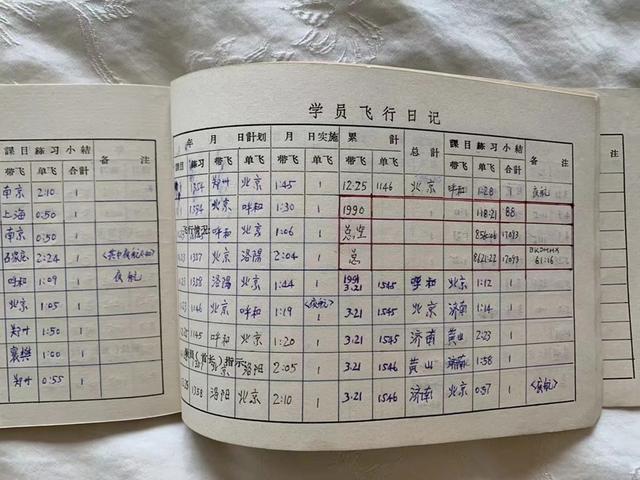 课目练习小结 备 注
带飞 单飞 合計
南京 2:10 1
上海 0:50 1
南京 0:50 1
2:24 1
呼和 1:09 1 夜航
北京 1:05 1
郑州 1:50 1
襄樊 1:00 1
郑州 0:55 1
学员飞行日记
年 月 日計划 月 日实施 累 計 总計 課目練习小結 备 注
課目 练习 带飞 单飞 带飞 单飞 带飞 单飞 带飞 单飞 合計
1354 郑州 北京 1:45 1 12.25 1146 北京 呼和 1:28 1 夜航
1354 北京 呼和 1:30 1 1990 118:21 88
呼和 北京 1:06 1 总空 17093
北京 洛陽 2:04 1 总 17093 61:16
1358 洛陽 北京 1:44 1 1991 3.21 1545 呼和 北京 1:12 1
1146 北京 呼和 1:19 <夜航> 1 3.21 1545 北京 济南 1:14 1
1145 呼和 北京 1:20 1 3.21 1545 济南 黄山 2:23 1
(首长)指示 洛阳 2:05 1 3.21 1546 黄山 济南 1:58 1
1358 洛阳 北京 2:10 1 3.21 1546 济南 北京 0:57 1 <夜航>